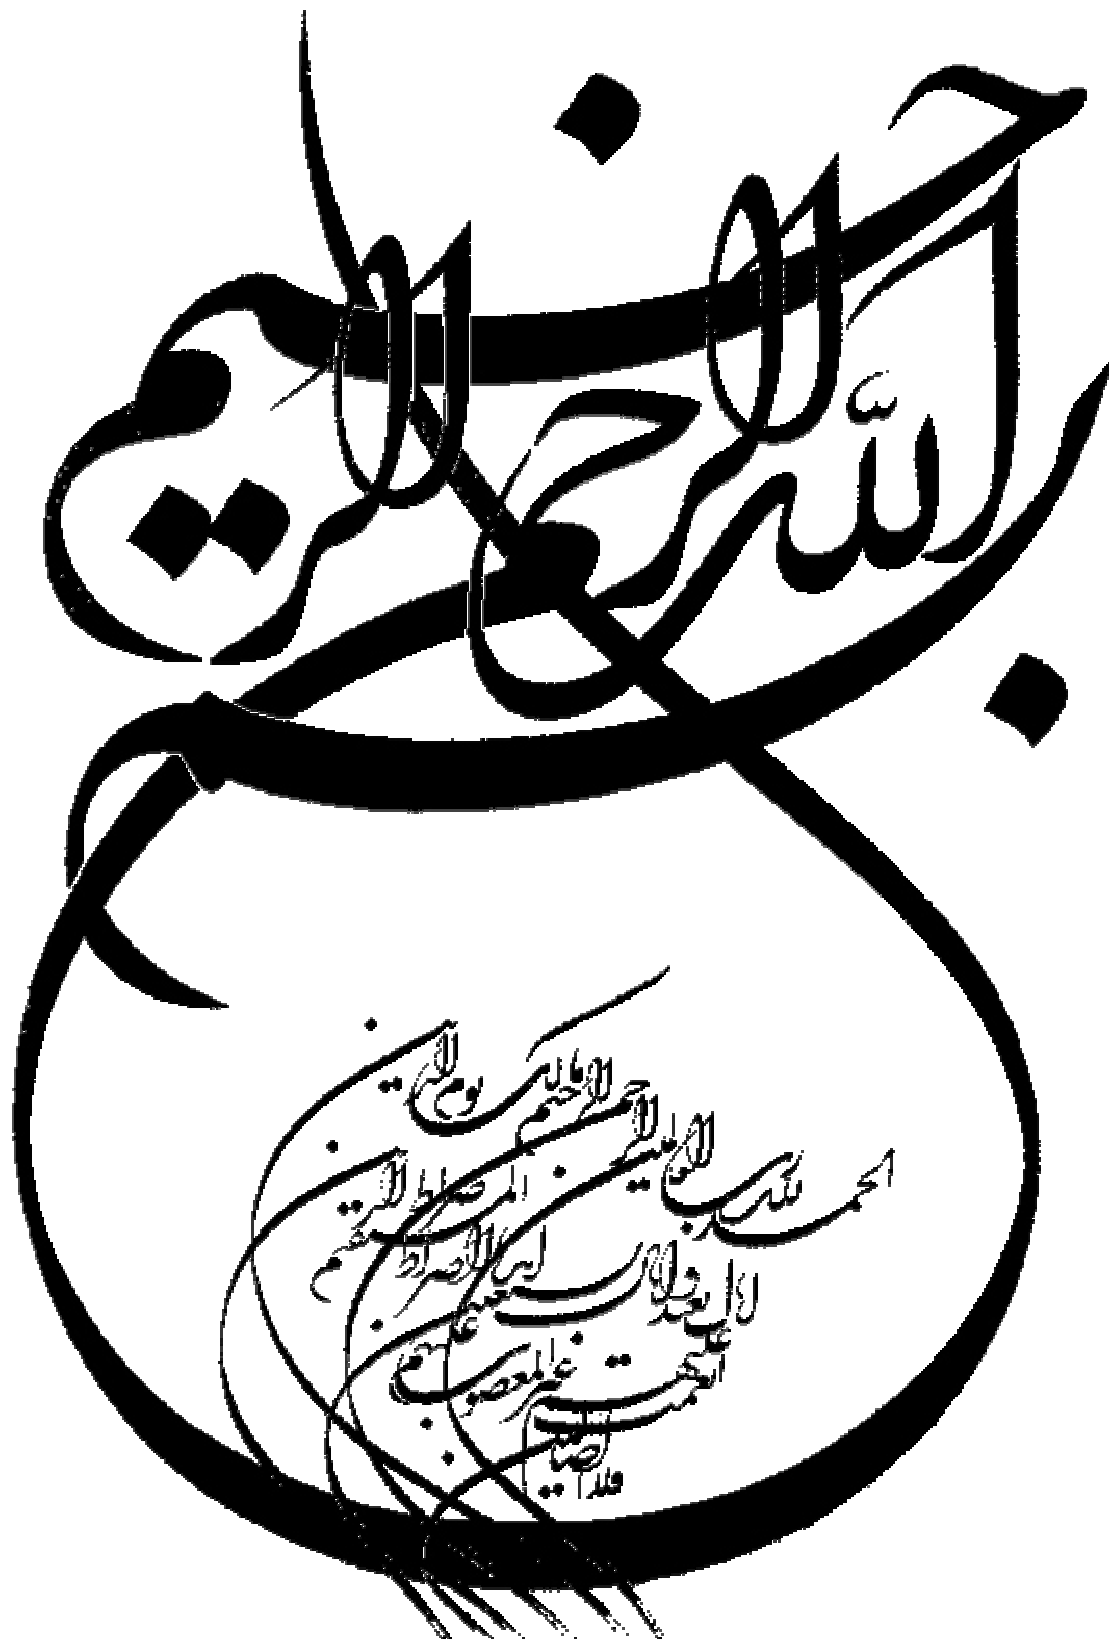 بسم الله الرحمن الرحیم
الحمد لله رب العالمین
الرحمن الرحیم
مالک یوم الدین
ایاک نعبد و ایاک نستعین
اهدنا الصراط المستقیم
صراط الذین
انعمت علیهم
غیر المغضوب علیهم
ولا الضالین